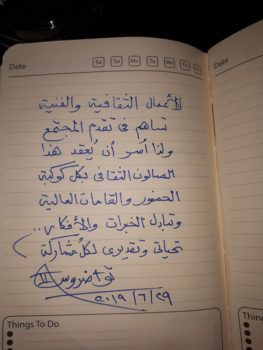 Date
Sa Su Mo Tu We Th Fr
Date
الأعمال الثقافية والفنية
تساهم فى تقدم المجتمع
ولذا أسر أن يُعقد هذا
الصالون الثقافى بكل كوكبة
الحضور والقامات العالية
وتبادل الخبرات والأفكار..
تحياتى وتقديرى لكل مشاركة
تواضروس II
٢٠١٩/٦/٢٩
Things To Do
Things